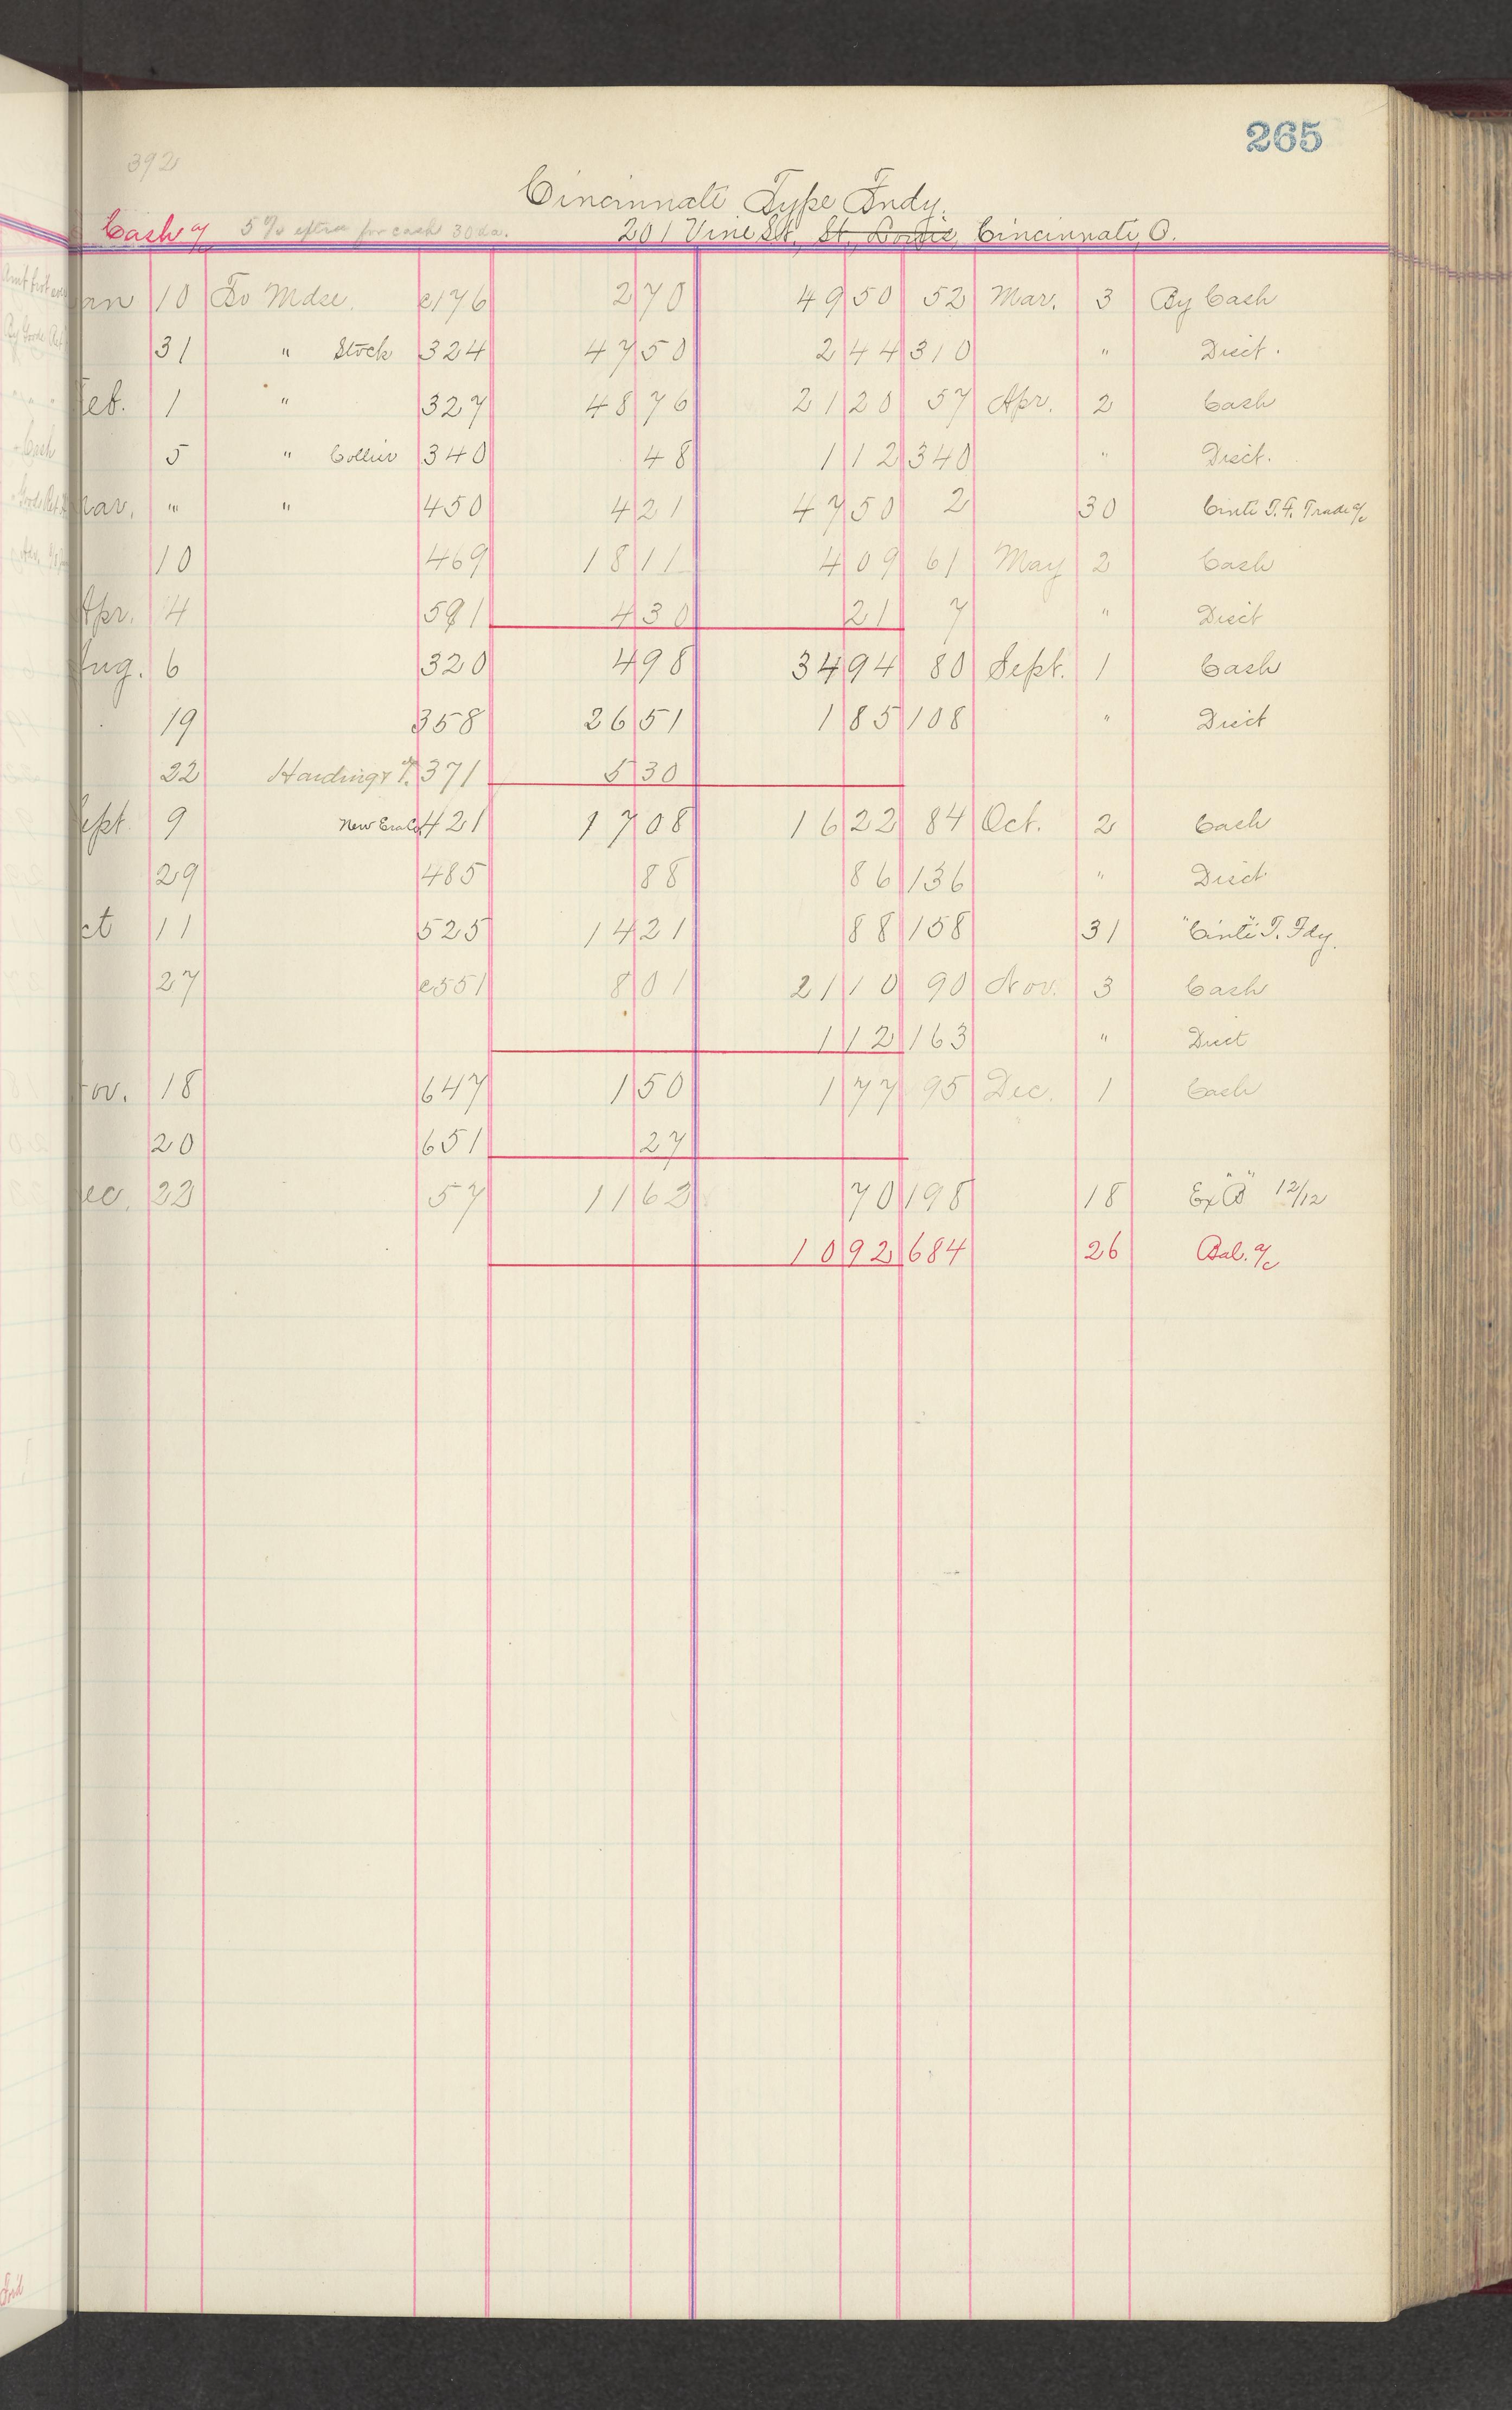 265
392
Cincinnati Type Fndy.
Cash a/c 5% extra for cash 30 da. 201 Vine St., St. Louis, Cincinnati, O.
an 10 To Mdse. c176 2 70 49 50 52 Mar. 3 By Cash
31 " Stock 324 47 50 2 44 310 " Disct.
Feb. 1 " 327 48 76 21 20 57 Apr. 2 Cash
5 " Collier 340 48 1 12 340 " Disct.
Mar. " " 450 4 21 47 50 2 30 Cinti T. F. Trade a/c
10 469 18 11 4 09 61 May 2 Cash
Apr. 4 591 4 30 21 7 " Disct
Aug. 6 320 4 98 34 94 80 Sept. 1 Cash
19 358 26 51 1 85 108 " Disct
22 371 5 30
Sept 9 New Era Co. 421 17 08 16 22 84 Oct. 2 Cash
29 485 88 86 136 " Disct
ct 11 525 14 21 88 158 31 "Cinti" T. Fdy.
27 c551 8 01 21 10 90 Nov. 3 Cash
1 12 163 " Disct
ov. 18 647 1 50 1 77 95 Dec. 1 Cash
20 651 27
ec. 23 57 11 62 70 198 18 Ex "B" 12/12
10 92 684 26 Bal. a/c